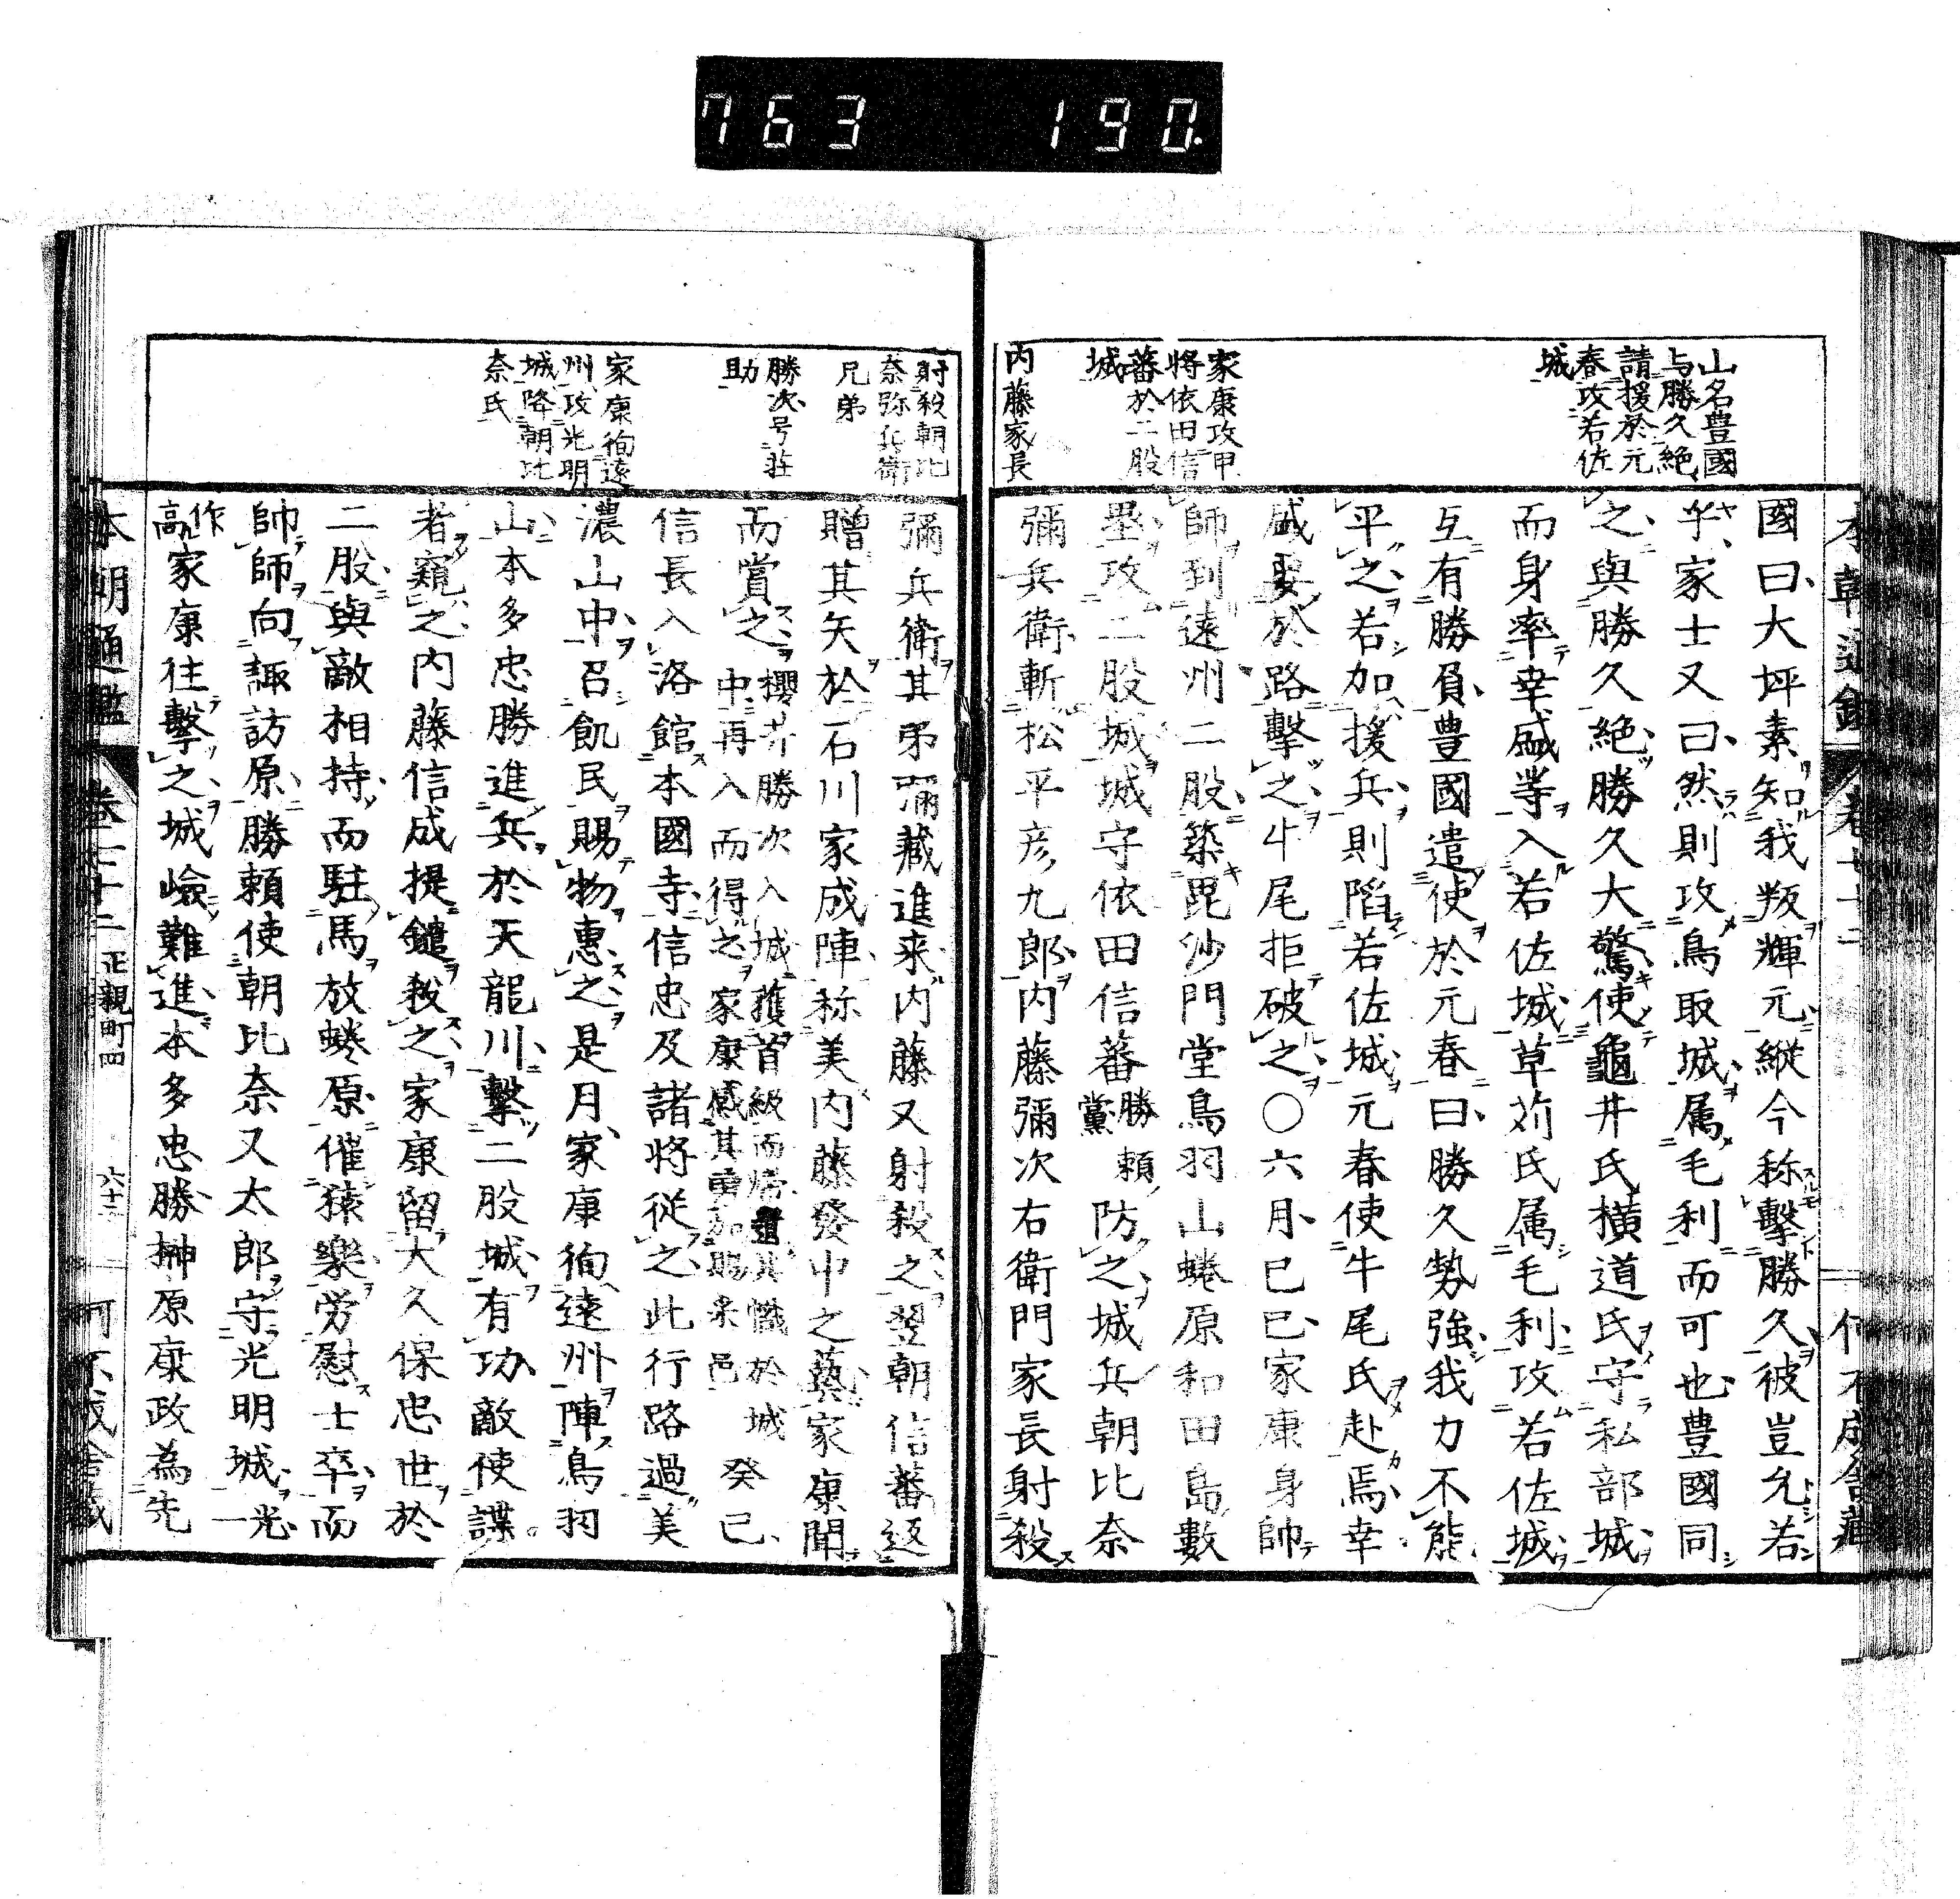 763 190.
山名豊國
与勝久絶
請援於元
春攻若佐
城
家康攻甲
將依田信
蕃於二股
城
内藤家長
國曰大坪素知我叛輝元縱今称擊勝久彼豈允若
乎家士又曰然則攻鳥取城属毛利而可也豊國同
之與勝久絶勝久大驚使龜井氏横道氏守私部城
而身率幸盛等入若佐城草苅氏属毛利攻若佐城
互有勝負豊國遣使於元春曰勝久勢強我力不能
平之若加援兵則陷若佐城元春使牛尾氏赴焉幸
盛要於路擊之牛尾拒破之〇六月己巳家康身帥
師到遠州二股築毘沙門堂鳥羽山蜷原和田島數
壘攻二股城城守依田信蕃勝頼黨防之城兵朝比奈
彌兵衛斬松平彦九郎内藤彌次右衛門家長射殺
射殺朝比
奈弥兵衛
兄弟
勝次号荘
助
家康徇遠
州攻光明
城降朝比
奈氏
彌兵衛其弟彌藏進来内藤又射殺之翌朝信蕃返
贈其矢於石川家成陣称美内藤發中之藝家康聞
而賞之櫻井勝次入城獲首級而帰遺其幟於城中再入而得之家康感其勇加賜采邑癸己
信長入洛館本國寺信忠及諸將従之此行路過美
濃山中召飢民賜物惠之是月家康徇遠州陣鳥羽
山本多忠勝進兵於天龍川擊二股城有功敵使諜
者窺之内藤信成提鑓殺之家康留大久保忠世於
二股與敵相持而駐馬放蜷原催猿樂労慰士卒而
帥師向諏訪原勝頼使朝比奈又太郎守光明城光一
作高家康往擊之城嶮難進本多忠勝榊原康政為先
本朝通鑑 卷七十二 正親町四 六十三